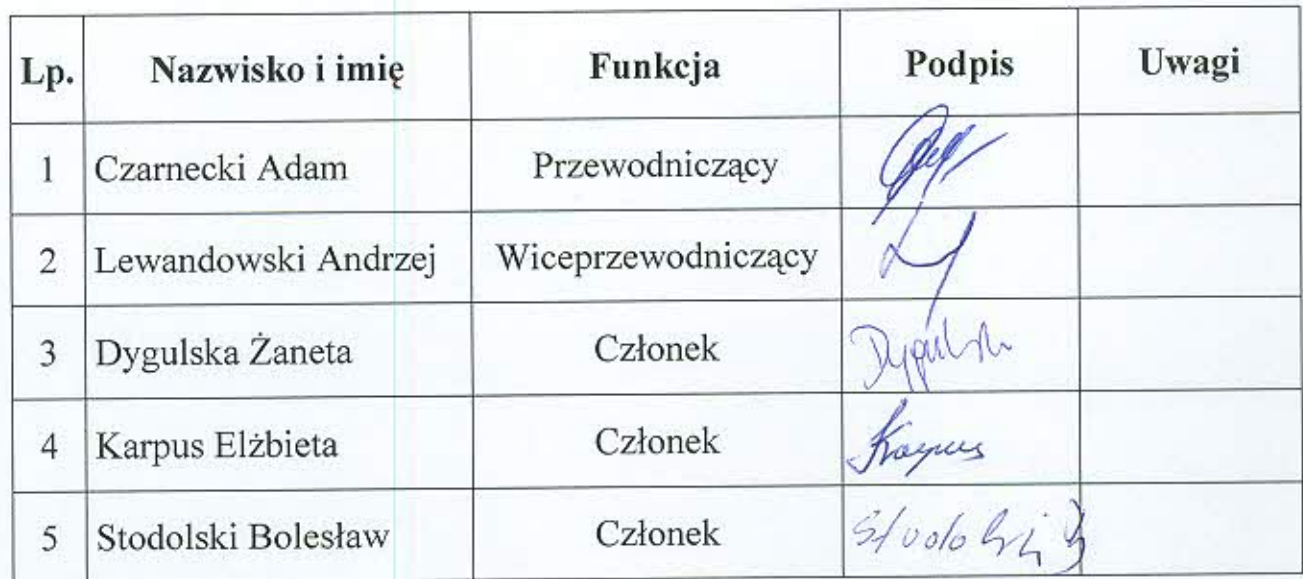 Lp. Nazwisko i imię Funkcja Podpis Uwagi
1 Czarnecki Adam Przewodniczący
2 Lewandowski Andrzej Wiceprzewodniczący
3 Dygulska Żaneta Członek
4 Karpus Elżbieta Członek Karpus
5 Stodolski Bolesław Członek Stodolski B